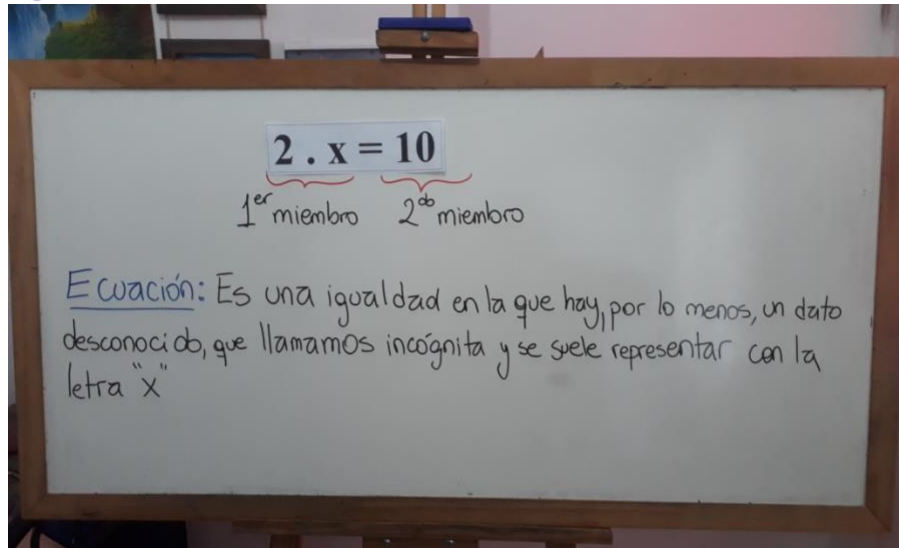 2 . x = 10
1er miembro 2do miembro
Ecuación: Es una igualdad en la que hay, por lo menos, un dato
desconocido, que llamamos incógnita y se suele representar con la
letra "x"